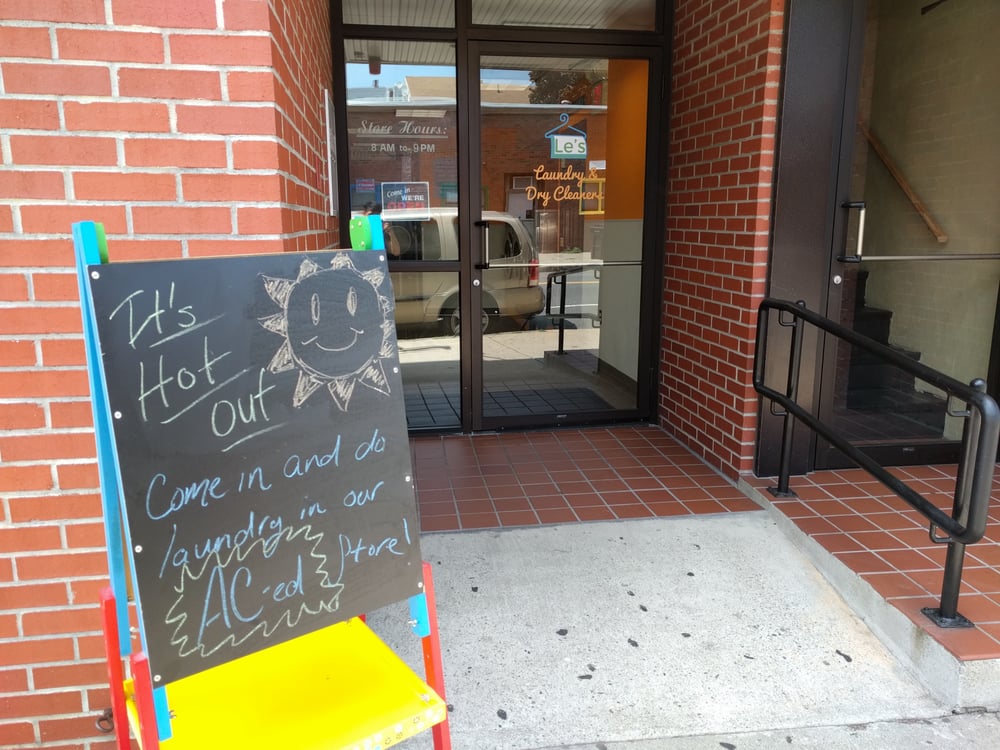 It's
Hot
out
Come in and do
laundry in our
AC-ed Store!
Store Hours:
8 AM to 9 PM
Come in
WE'RE
OPEN
Le's
Laundry &
Dry Cleaners